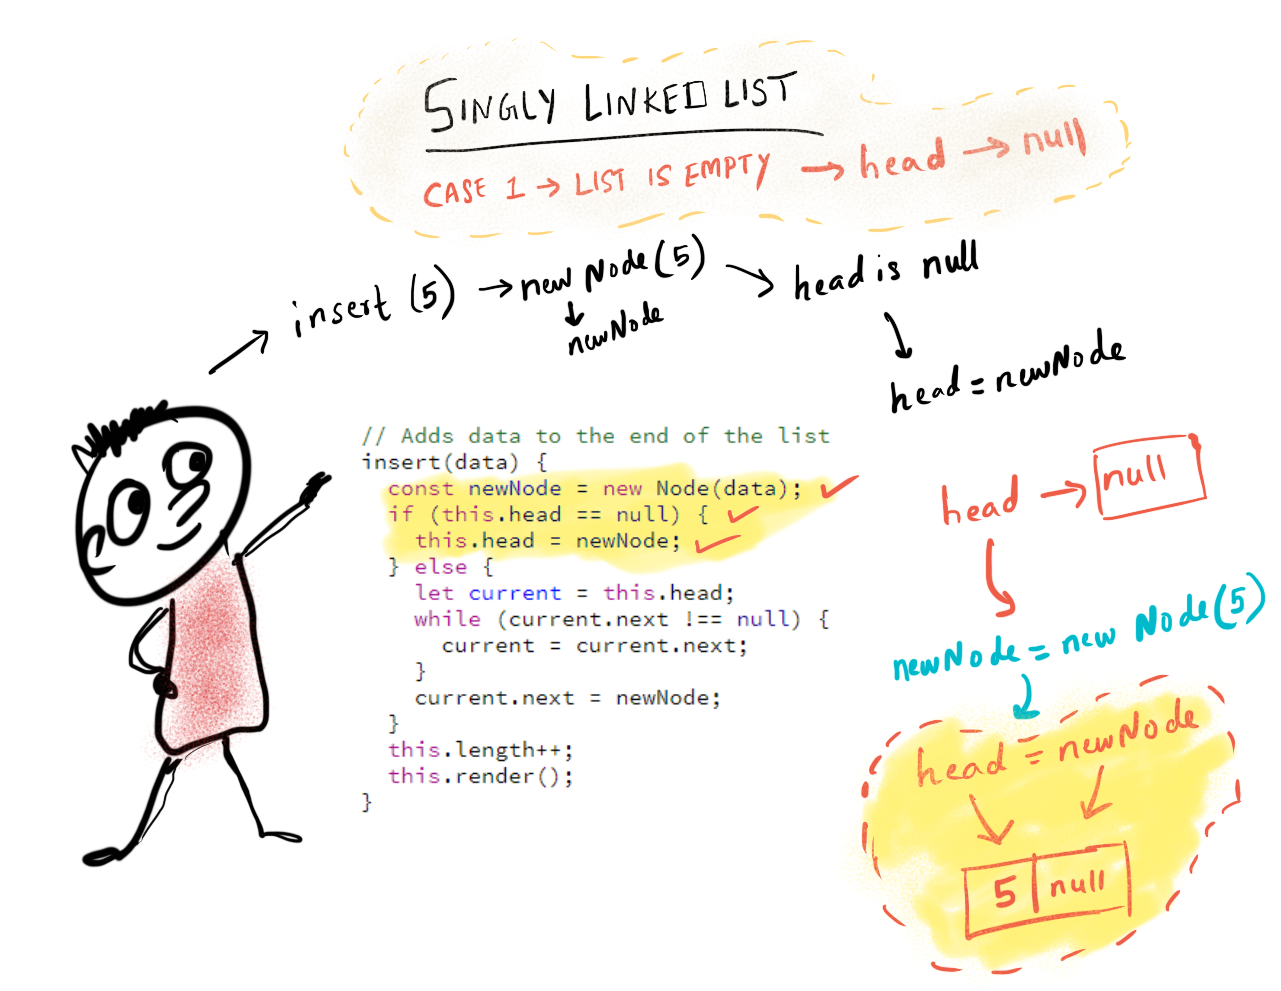 SINGLY LINKED LIST
CASE 1 → LIST IS EMPTY → head → null
insert (5) → new Node(5) → head is null
newNode
head = newNode
// Adds data to the end of the list
insert(data) {
  const newNode = new Node(data);
  if (this.head == null) {
    this.head = newNode;
  } else {
    let current = this.head;
    while (current.next !== null) {
      current = current.next;
    }
    current.next = newNode;
  }
  this.length++;
  this.render();
}
head → null
newNode = new Node(5)
head = newNode
5 null